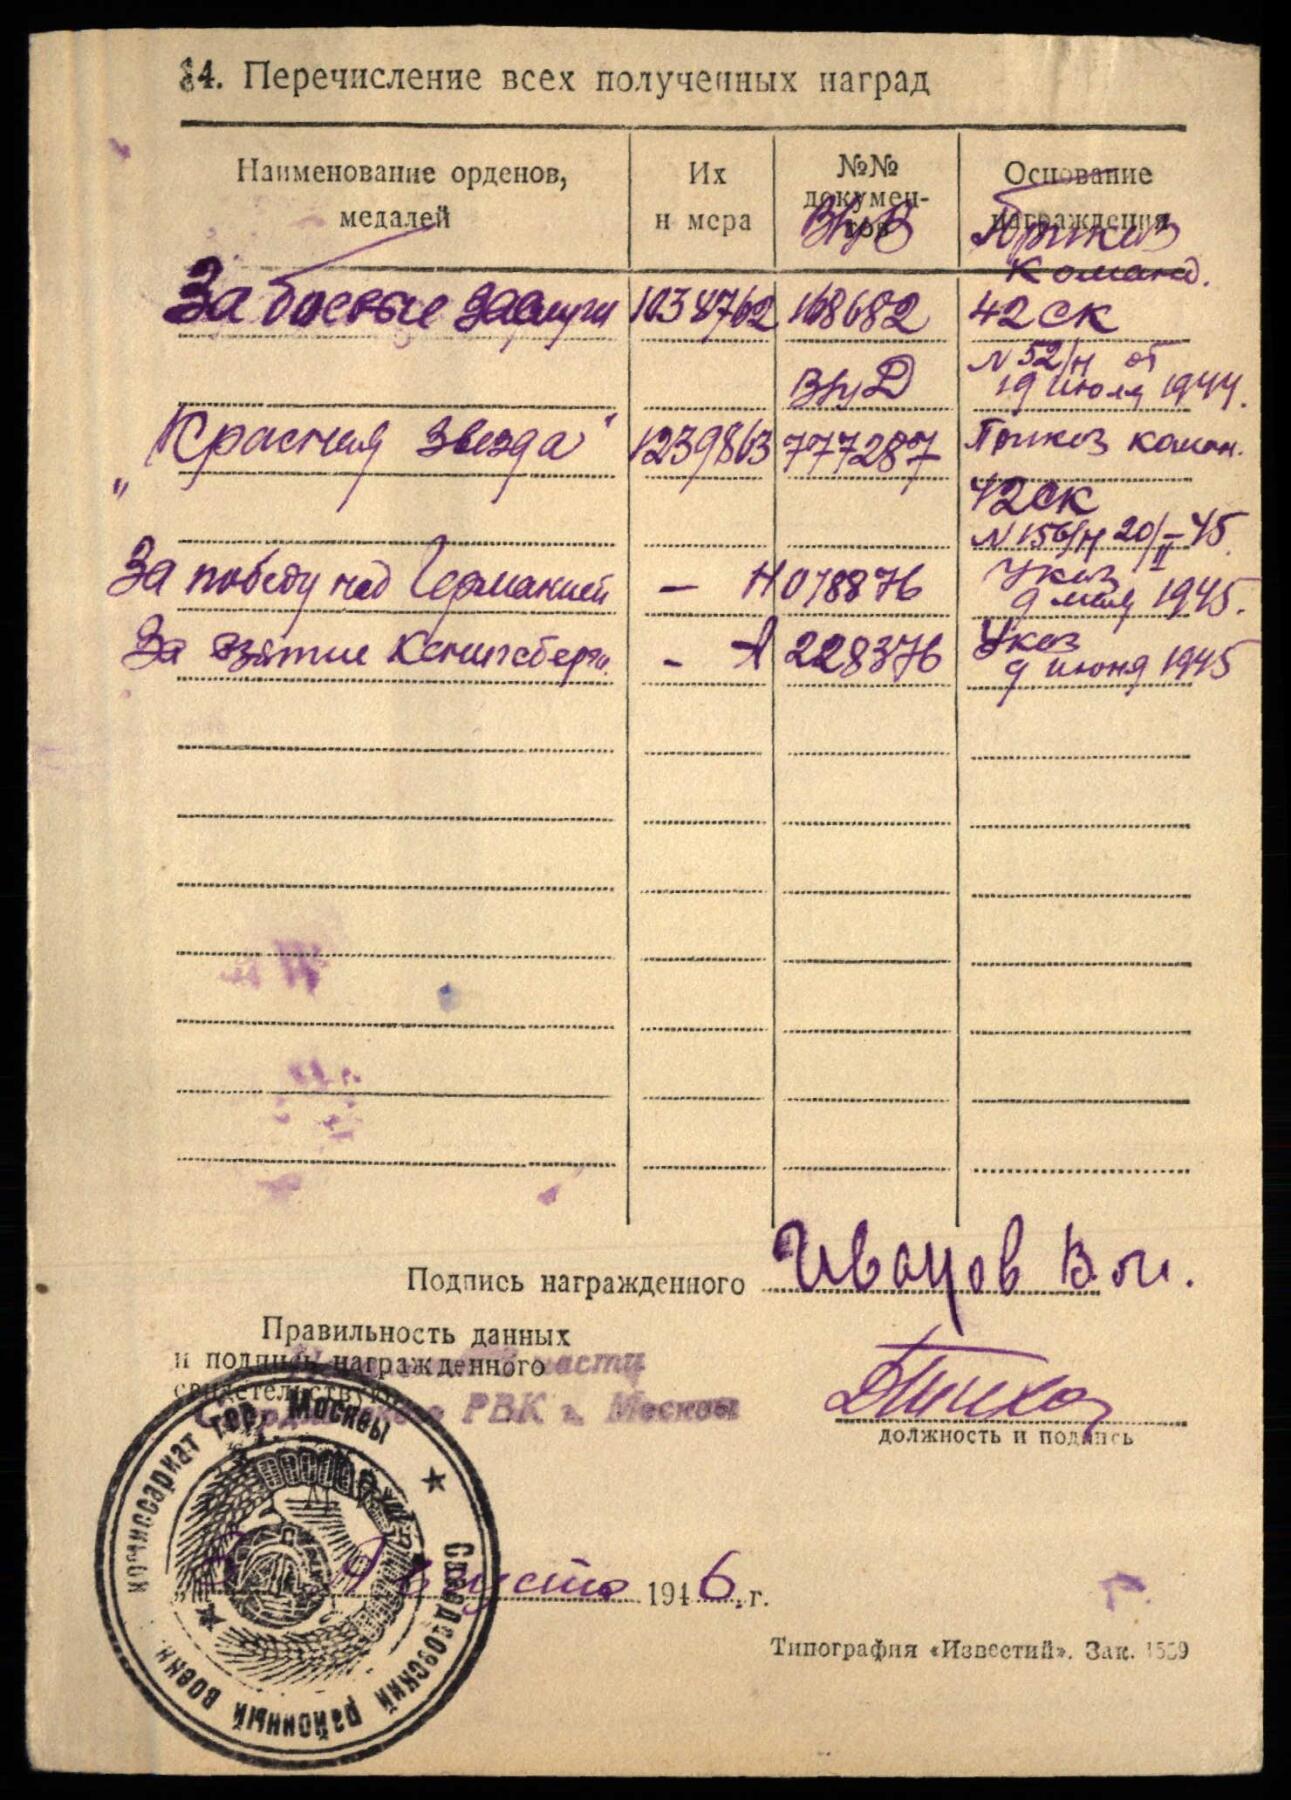 14. Перечисление всех полученных наград
Наименование орденов,
медалей
Их
н мера
№№
докумен-
тов
Основание
награждения
Вр. В
Приказ
Команд.
За боевые заслуги 1038762 168682 42 СК
N 52/н от
19 июля 1944.
Вр. Д
"Красная звезда" 1239863 777287 Приказ коман.
42 СК
N 156/н 20/II-45
За победу над Германией – Н 078876 Указ
9 мая 1945.
За взятие Кенигсберга. – А 228376 Указ
9 июня 1945
Подпись награжденного Иванов В. М.
Правильность данных
и подпись награжденного
свидетельствую
части
РВК г. Москвы
должность и подпись
Комиссариат гор. Москвы
Свердловский районный военн.
Августа 1946. г.
Типография «Известий». Зак. 1559